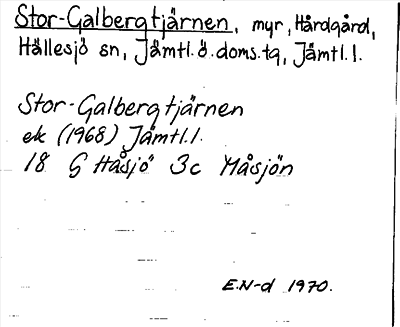 Stor-Galbergtjärnen, myr, Hårdgård,
Hällesjö sn, Jämtl.ö.doms.tg, Jämtl.l.
Stor-Galbergtjärnen
ek (1968) Jämtl.l.
18 G Håsjö 3c Måsjön
E.N-d 1970.